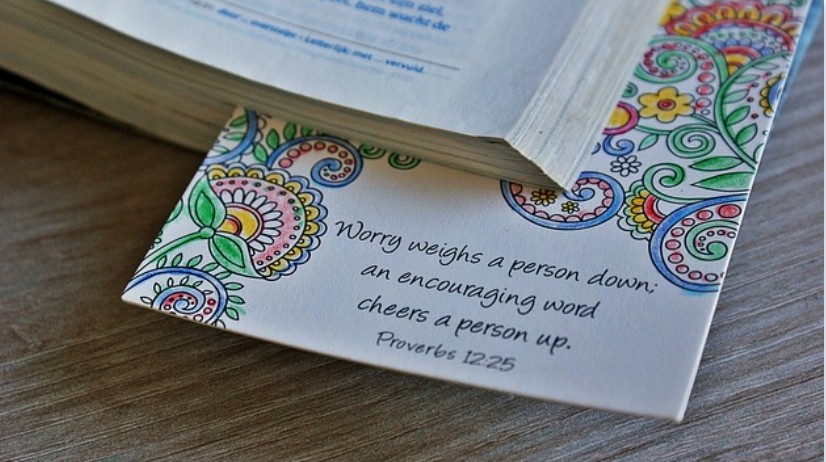 ziel,
hem wacht de
door
Letterlijk: met ... vervuld.
Worry weighs a person down;
an encouraging word
cheers a person up.
Proverbs 12:25